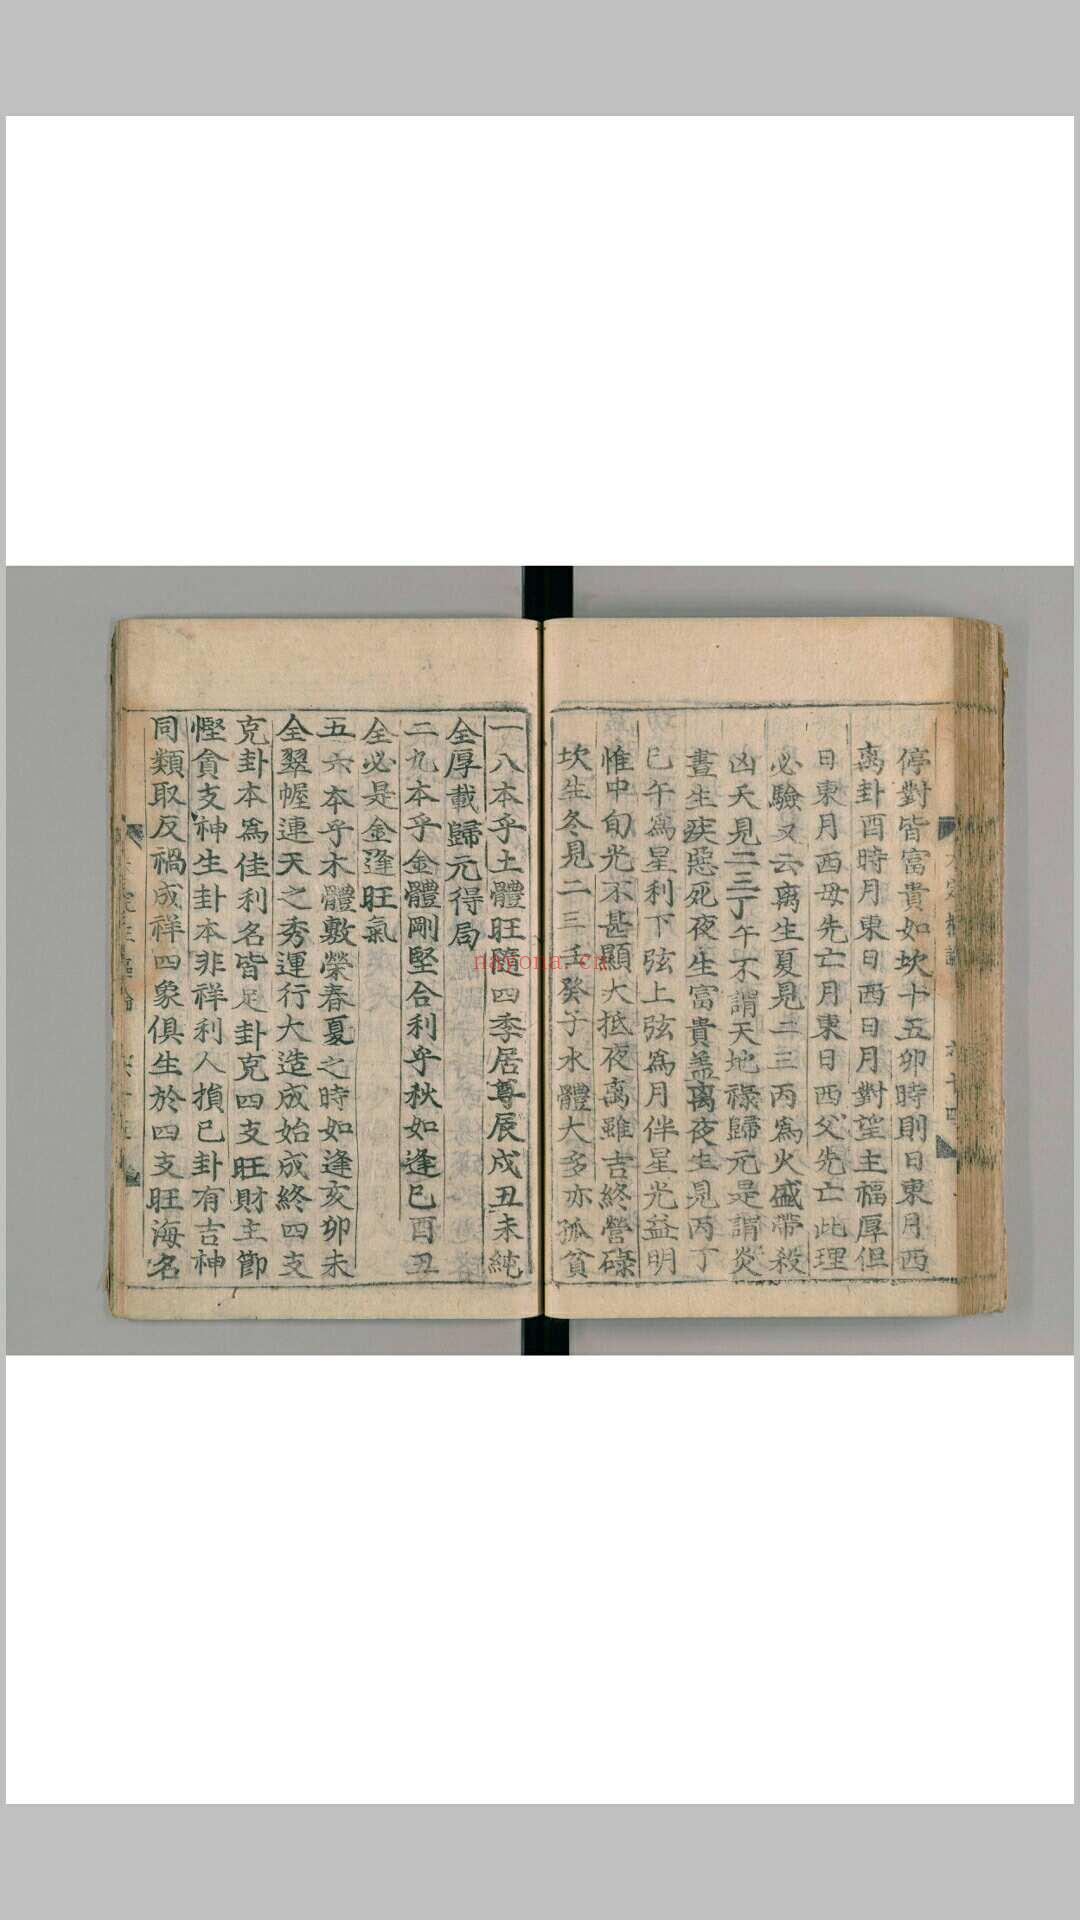 停對皆富貴如坎十五卯時則日東月西
离卦酉時月東日西日月對望主福厚但
日東月西母先亡月東日西父先亡此理
必驗又云离生夏見二三丙為火盛帶殺
凶夭見二三丁午不謂天地祿歸元是謂炎
晝生疾惡死夜生富貴盖离夜生見丙丁
巳午為星利下弦上弦為月伴星光益明
惟中旬光不甚顯大抵夜离雖吉終營碌
坎生冬見二三壬癸子水體大多亦孤貧
一八本乎土體旺隨四季居尊辰戌丑未純
全厚載歸元得局
二九本乎金體剛堅合利乎秋如逢巳酉丑
全必是金逢旺氣
五六本乎木體敷榮春夏之時如逢亥卯未
全翠幄連天之秀運行大造成始成終四支
克卦本為佳利名皆足卦克四支旺財主節
慳貪支神生卦本非祥利人損己卦有吉神
同類取反禍成祥四象俱生於四支旺海名
nayona.cn